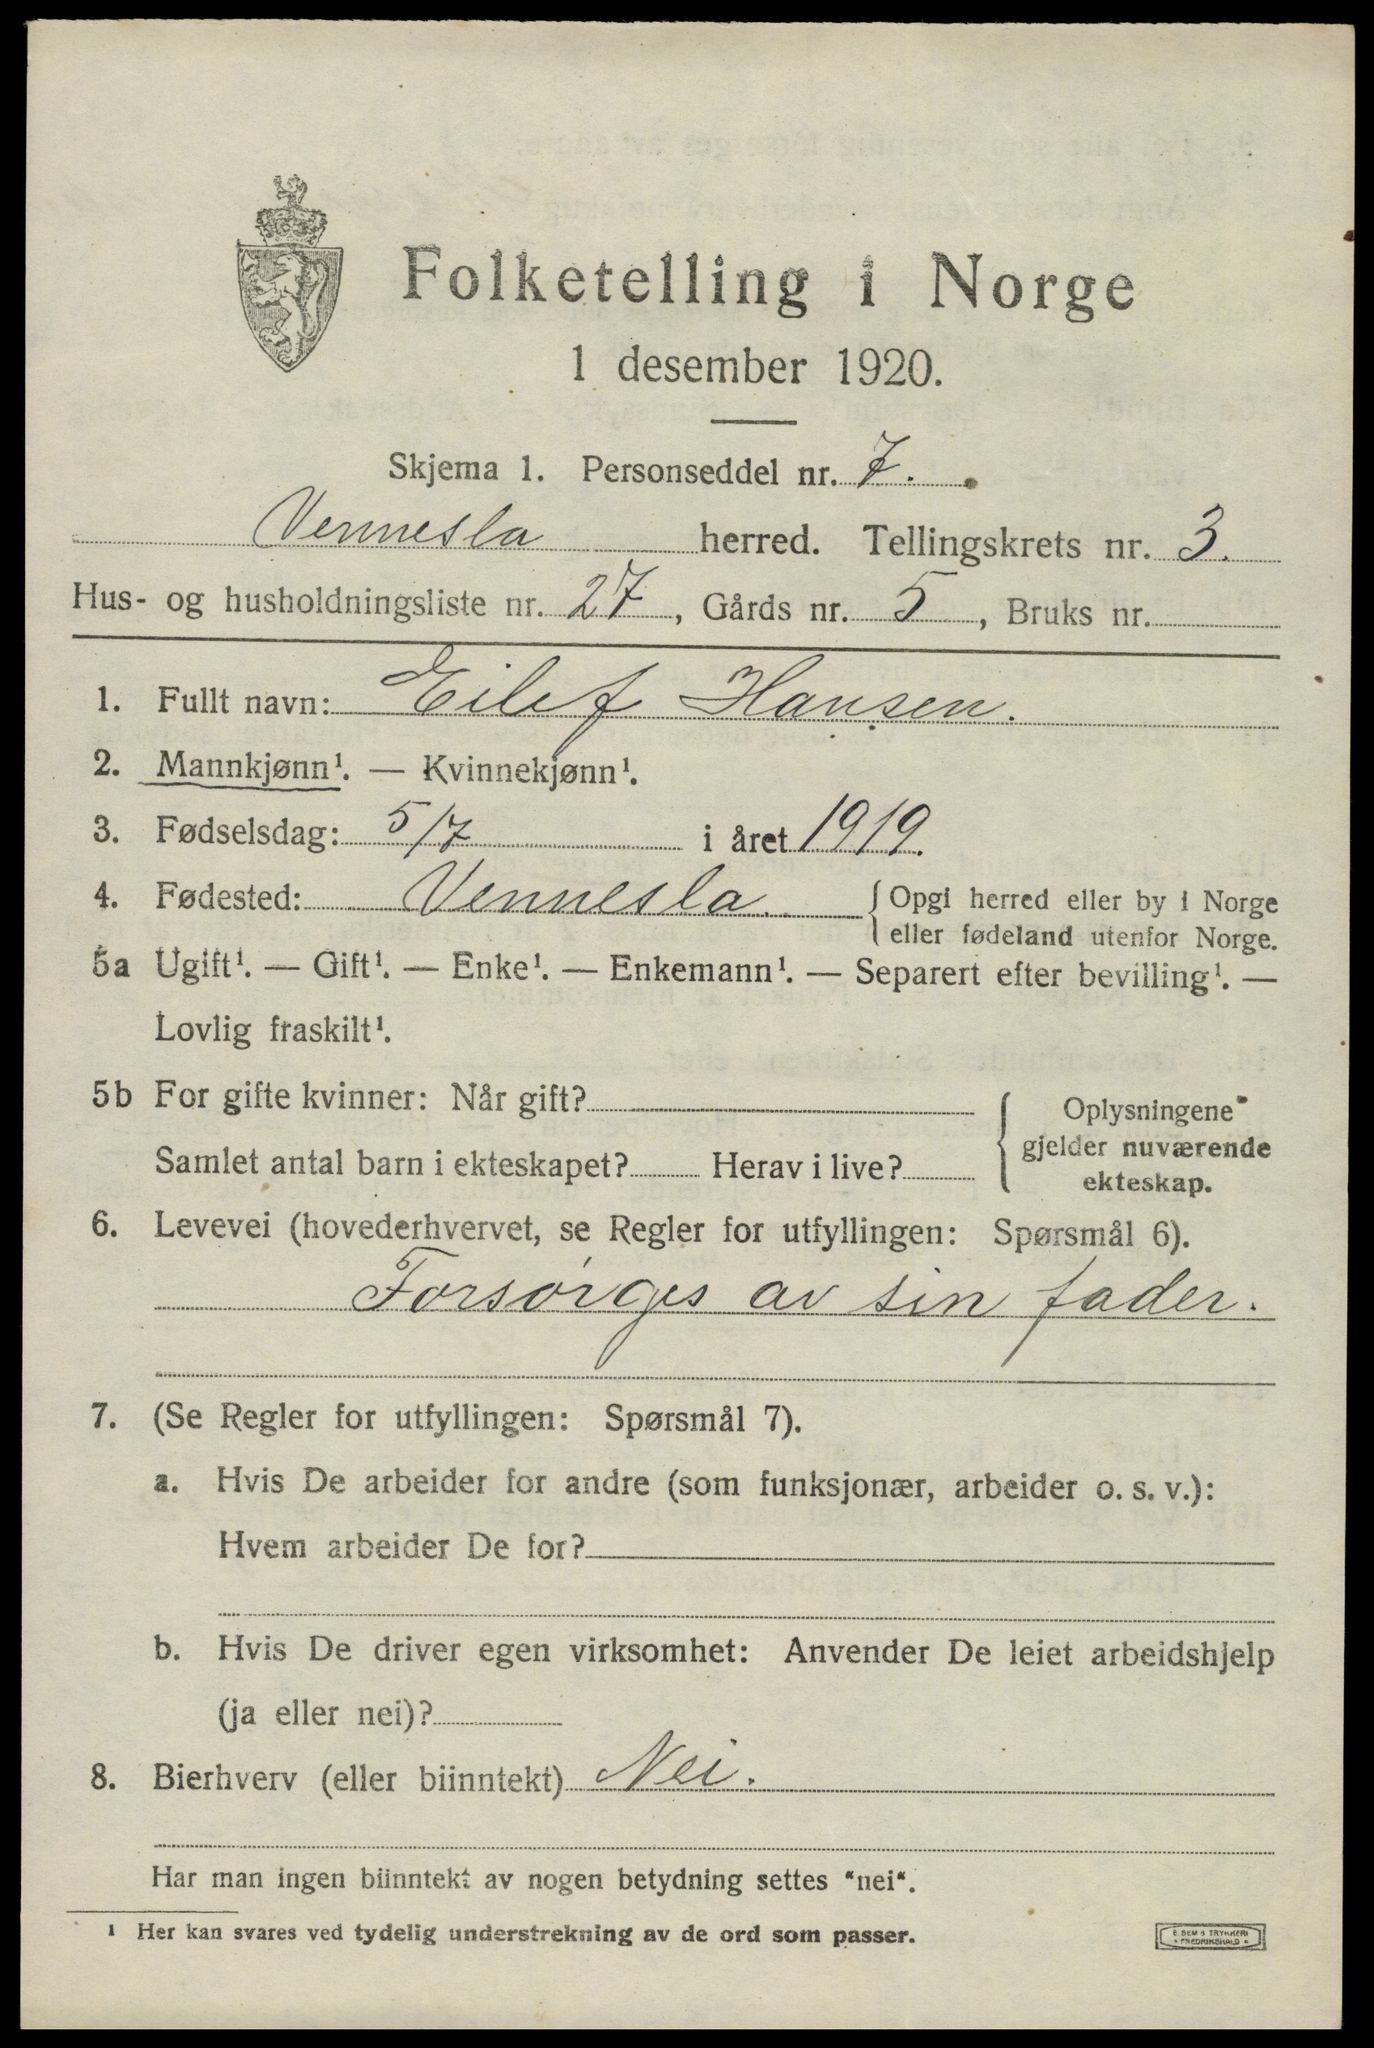 Folketelling i Norge
1 desember 1920.
Skjema 1. Personseddel nr. 7.
Vennesla herred. Tellingskrets nr. 3.
Hus- og husholdningsliste nr. 27, Gårds nr. 5, Bruks nr.
1. Fullt navn: Eilef Hansen.
2. Mannkjønn¹. — Kvinnekjønn¹.
3. Fødselsdag: 5/7 i året 1919.
4. Fødested: Vennesla. { Opgi herred eller by i Norge
eller fødeland utenfor Norge.
5a Ugift¹. — Gift¹. — Enke¹. — Enkemann¹. — Separert efter bevilling¹. —
Lovlig fraskilt¹.
5b For gifte kvinner: Når gift? { Oplysningene
gjelder nuværende
Samlet antal barn i ekteskapet? Herav i live? ekteskap.
6. Levevei (hovederhvervet, se Regler for utfyllingen: Spørsmål 6).
Forsørges av sin fader.
7. (Se Regler for utfyllingen: Spørsmål 7).
a. Hvis De arbeider for andre (som funksjonær, arbeider o. s. v.):
Hvem arbeider De for?
b. Hvis De driver egen virksomhet: Anvender De leiet arbeidshjelp
(ja eller nei)?
8. Bierhverv (eller biinntekt) Nei.
Har man ingen biinntekt av nogen betydning settes "nei".
¹ Her kan svares ved tydelig understrekning av de ord som passer.
E. SEM'S TRYKKERI
• FREDRIKSHALD •